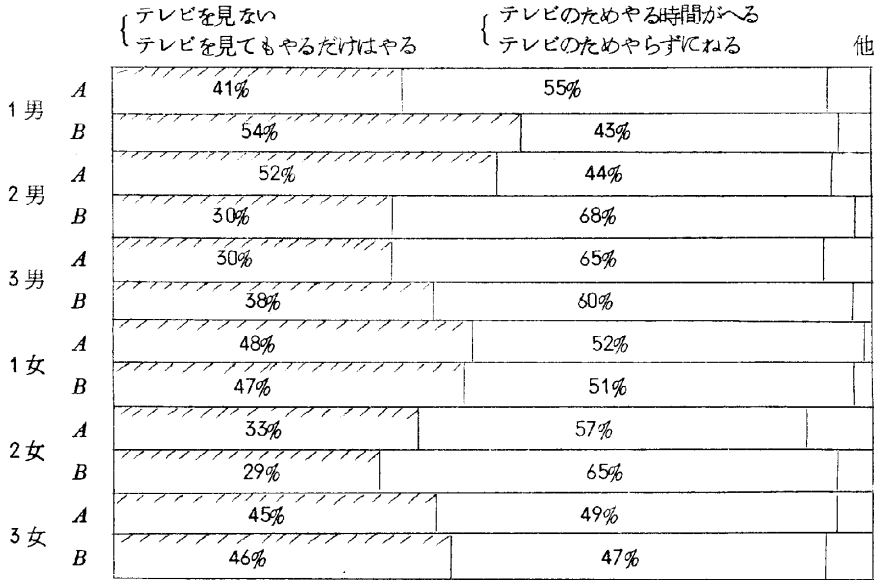 テレビを見ない
テレビを見てもやるだけはやる
テレビのためやる時間がへる
テレビのためやらずにねる
他
1男
A 41% 55%
B 54% 43%
2男
A 52% 44%
B 30% 68%
3男
A 30% 65%
B 38% 60%
1女
A 48% 52%
B 47% 51%
2女
A 33% 57%
B 29% 65%
3女
A 45% 49%
B 46% 47%